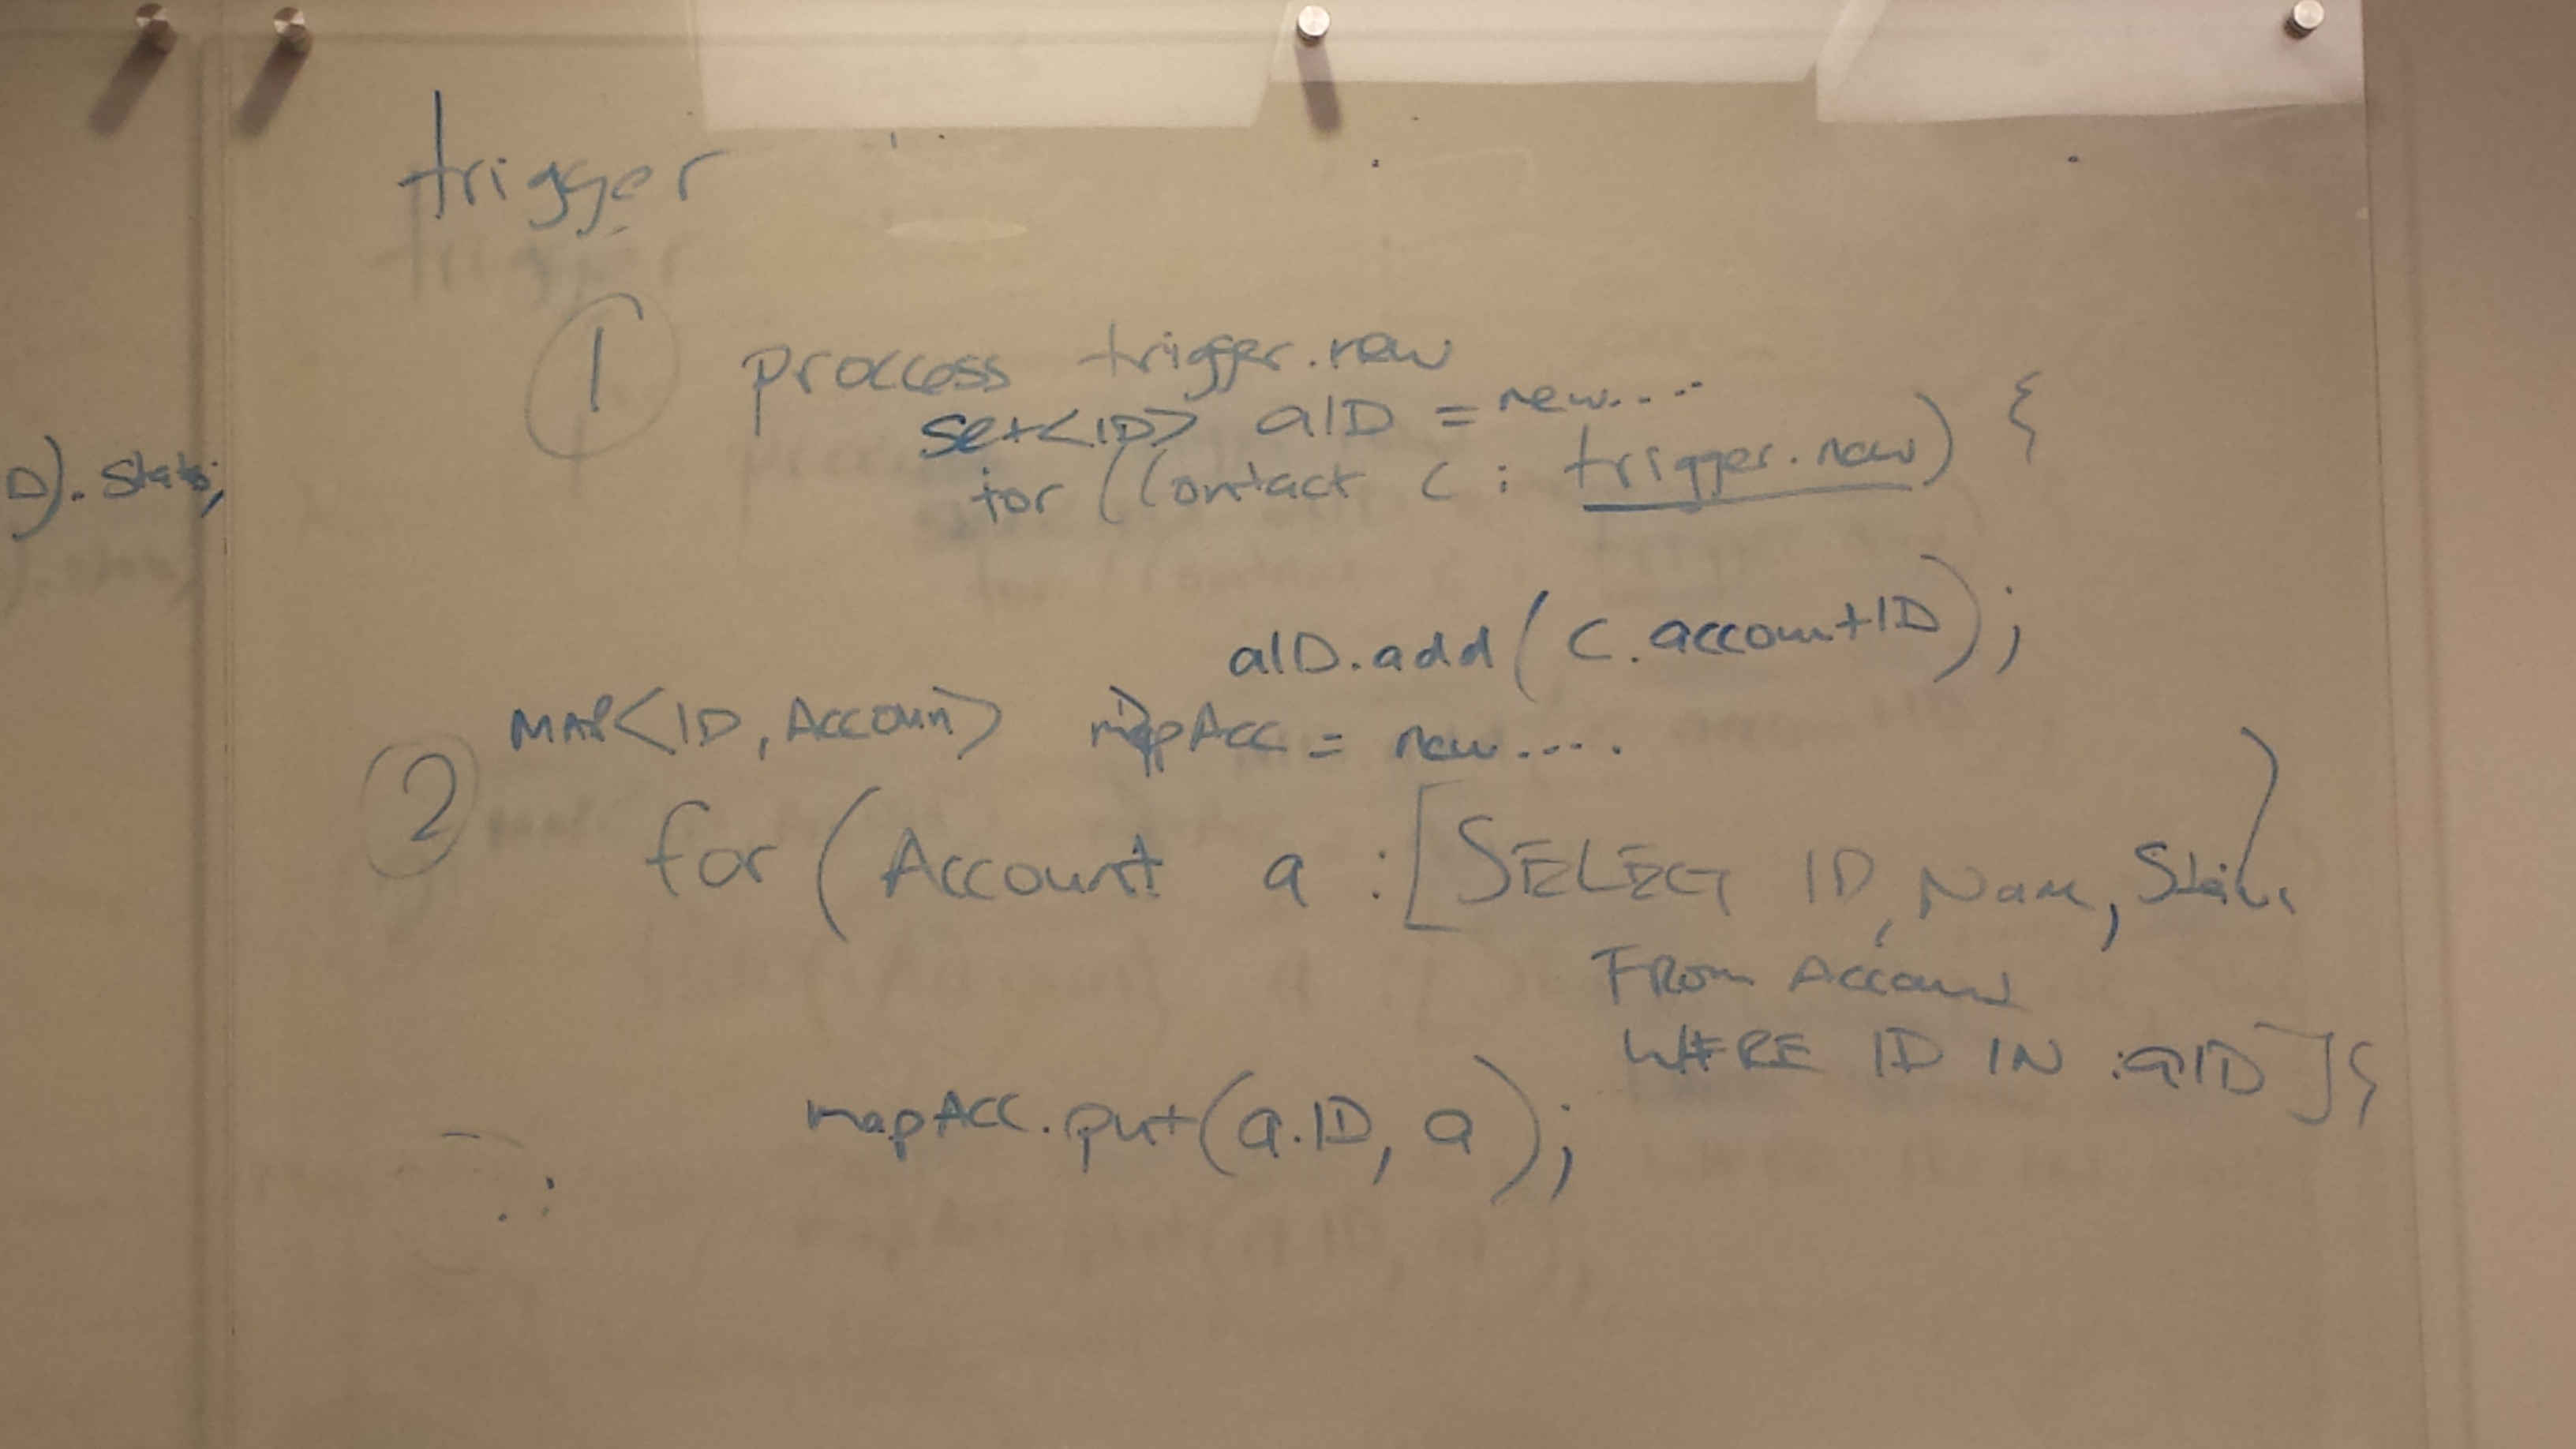 trigger
1 proccess trigger.new
set<ID> aID = new....
for (Contact c : trigger.new) {
D). State;
aID.add(c.accountID);
MAP<ID, Accoun> mapAcc = new....
2 for (Account a : [SELECT ID, Name, )
FROM Account
WHERE ID IN :aID]{
mapAcc.put(a.ID, a);